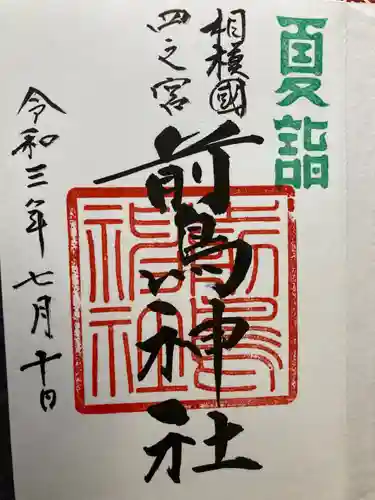 夏詣
相模國
四之宮
前鳥神社
令和三年七月十日
前鳥
神社